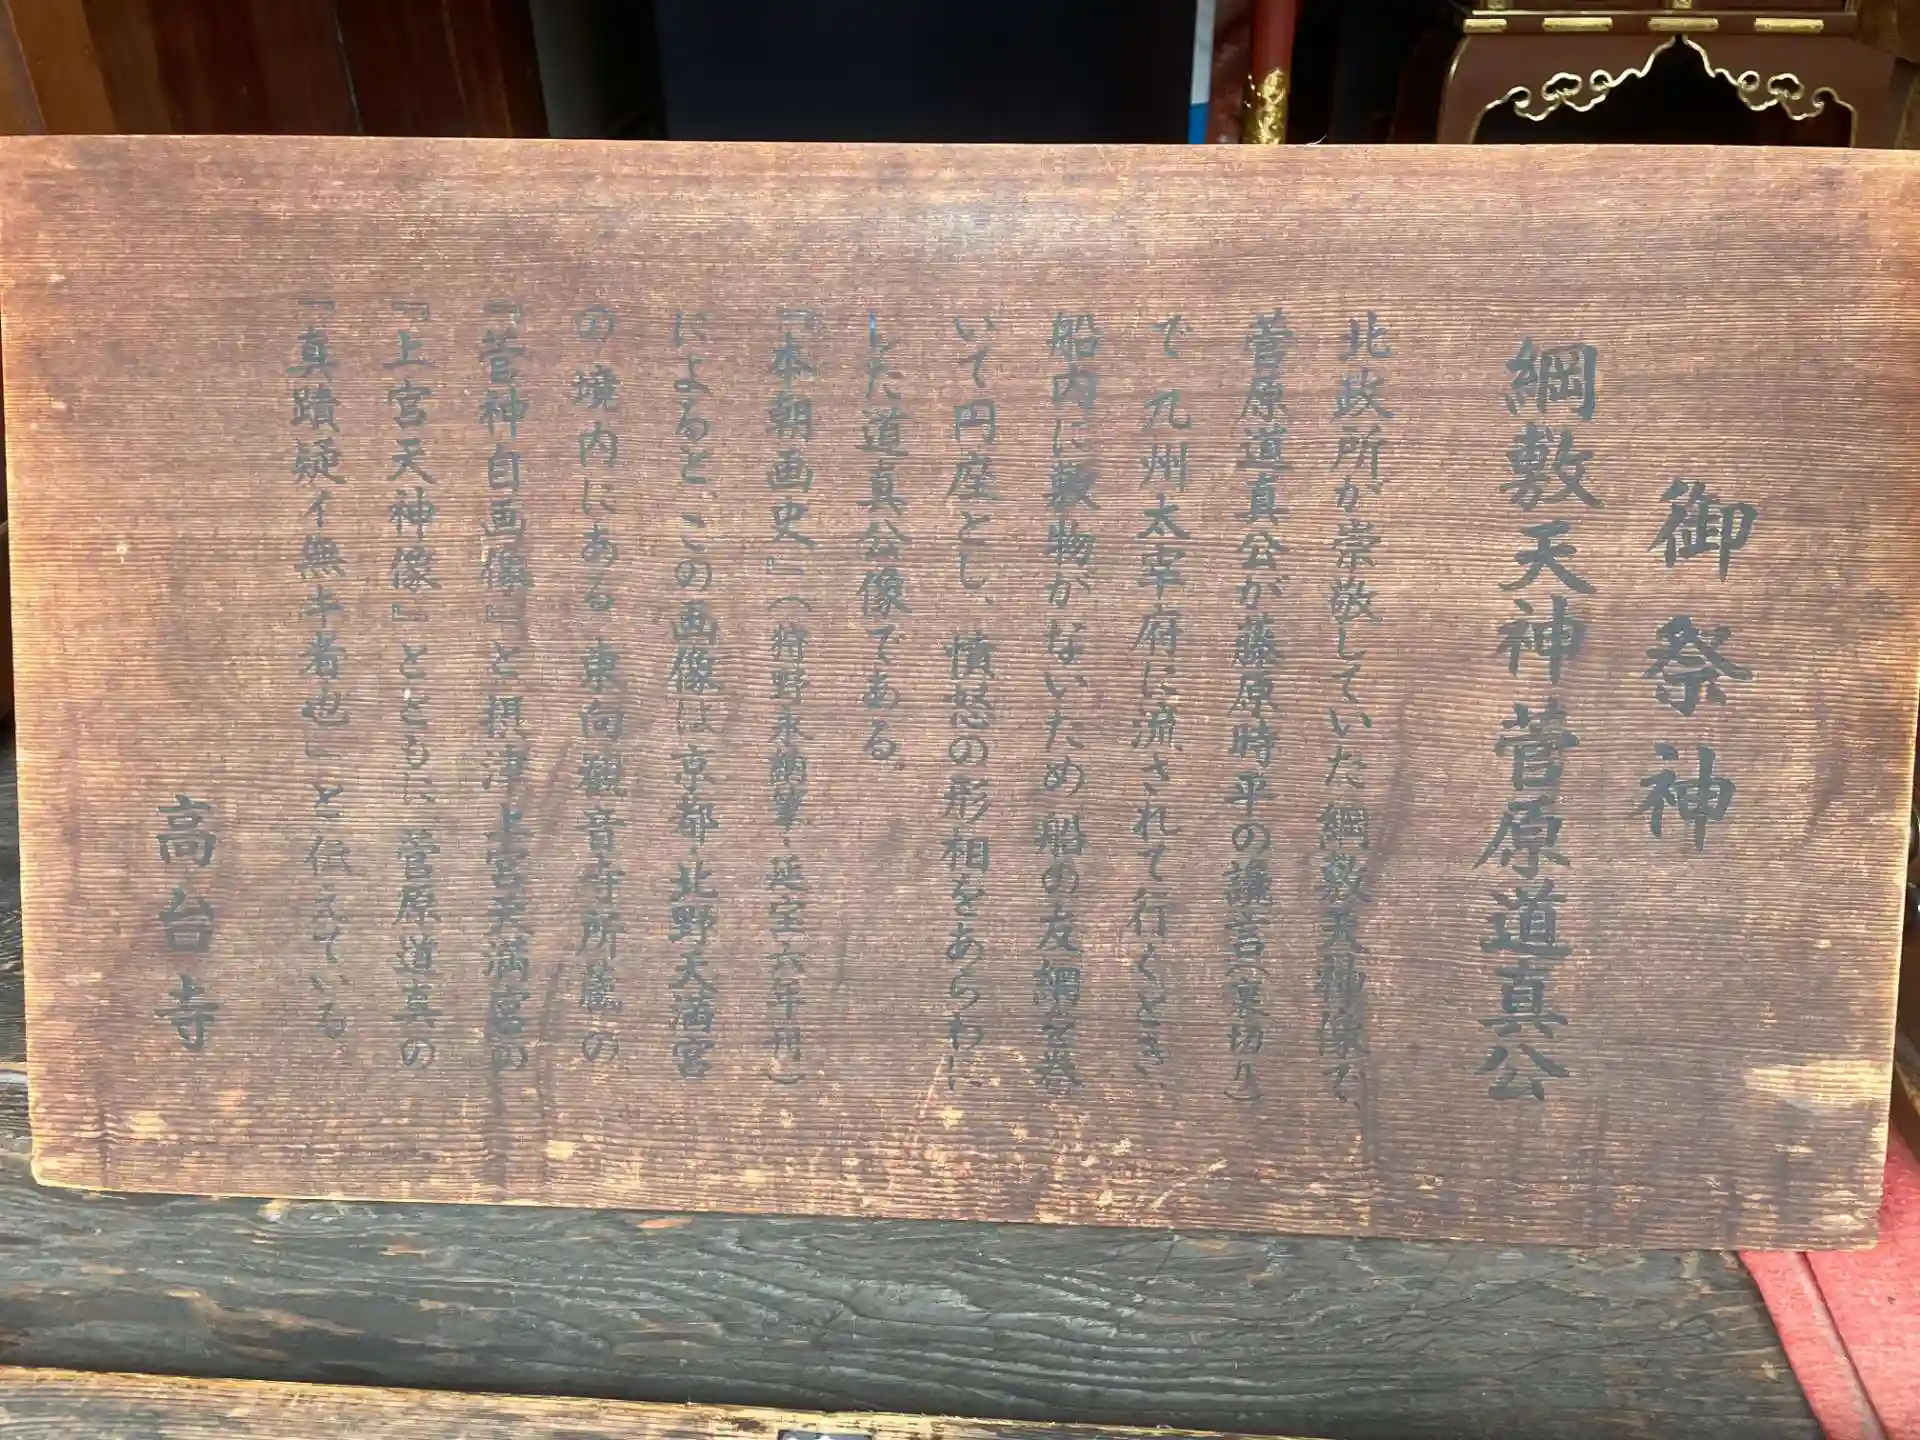 御祭神
綱敷天神菅原道真公
北政所が崇敬していた綱敷天神像で、
菅原道真公が藤原時平の讒言(裏切り)
で九州太宰府に流されて行くとき、
船内に敷物がないため船の友綱を巻
いて円座とし、憤怒の形相をあらわに
した道真公像である。
『本朝画史』(狩野永納筆・延宝六年刊)
によると、この画像は京都・北野天満宮
の境内にある東向観音寺所蔵の
『菅神自画像』と摂津上宮天満宮の
『上宮天神像』とともに、菅原道真の
『真蹟疑イ無キ者也』と伝えている。
高台寺